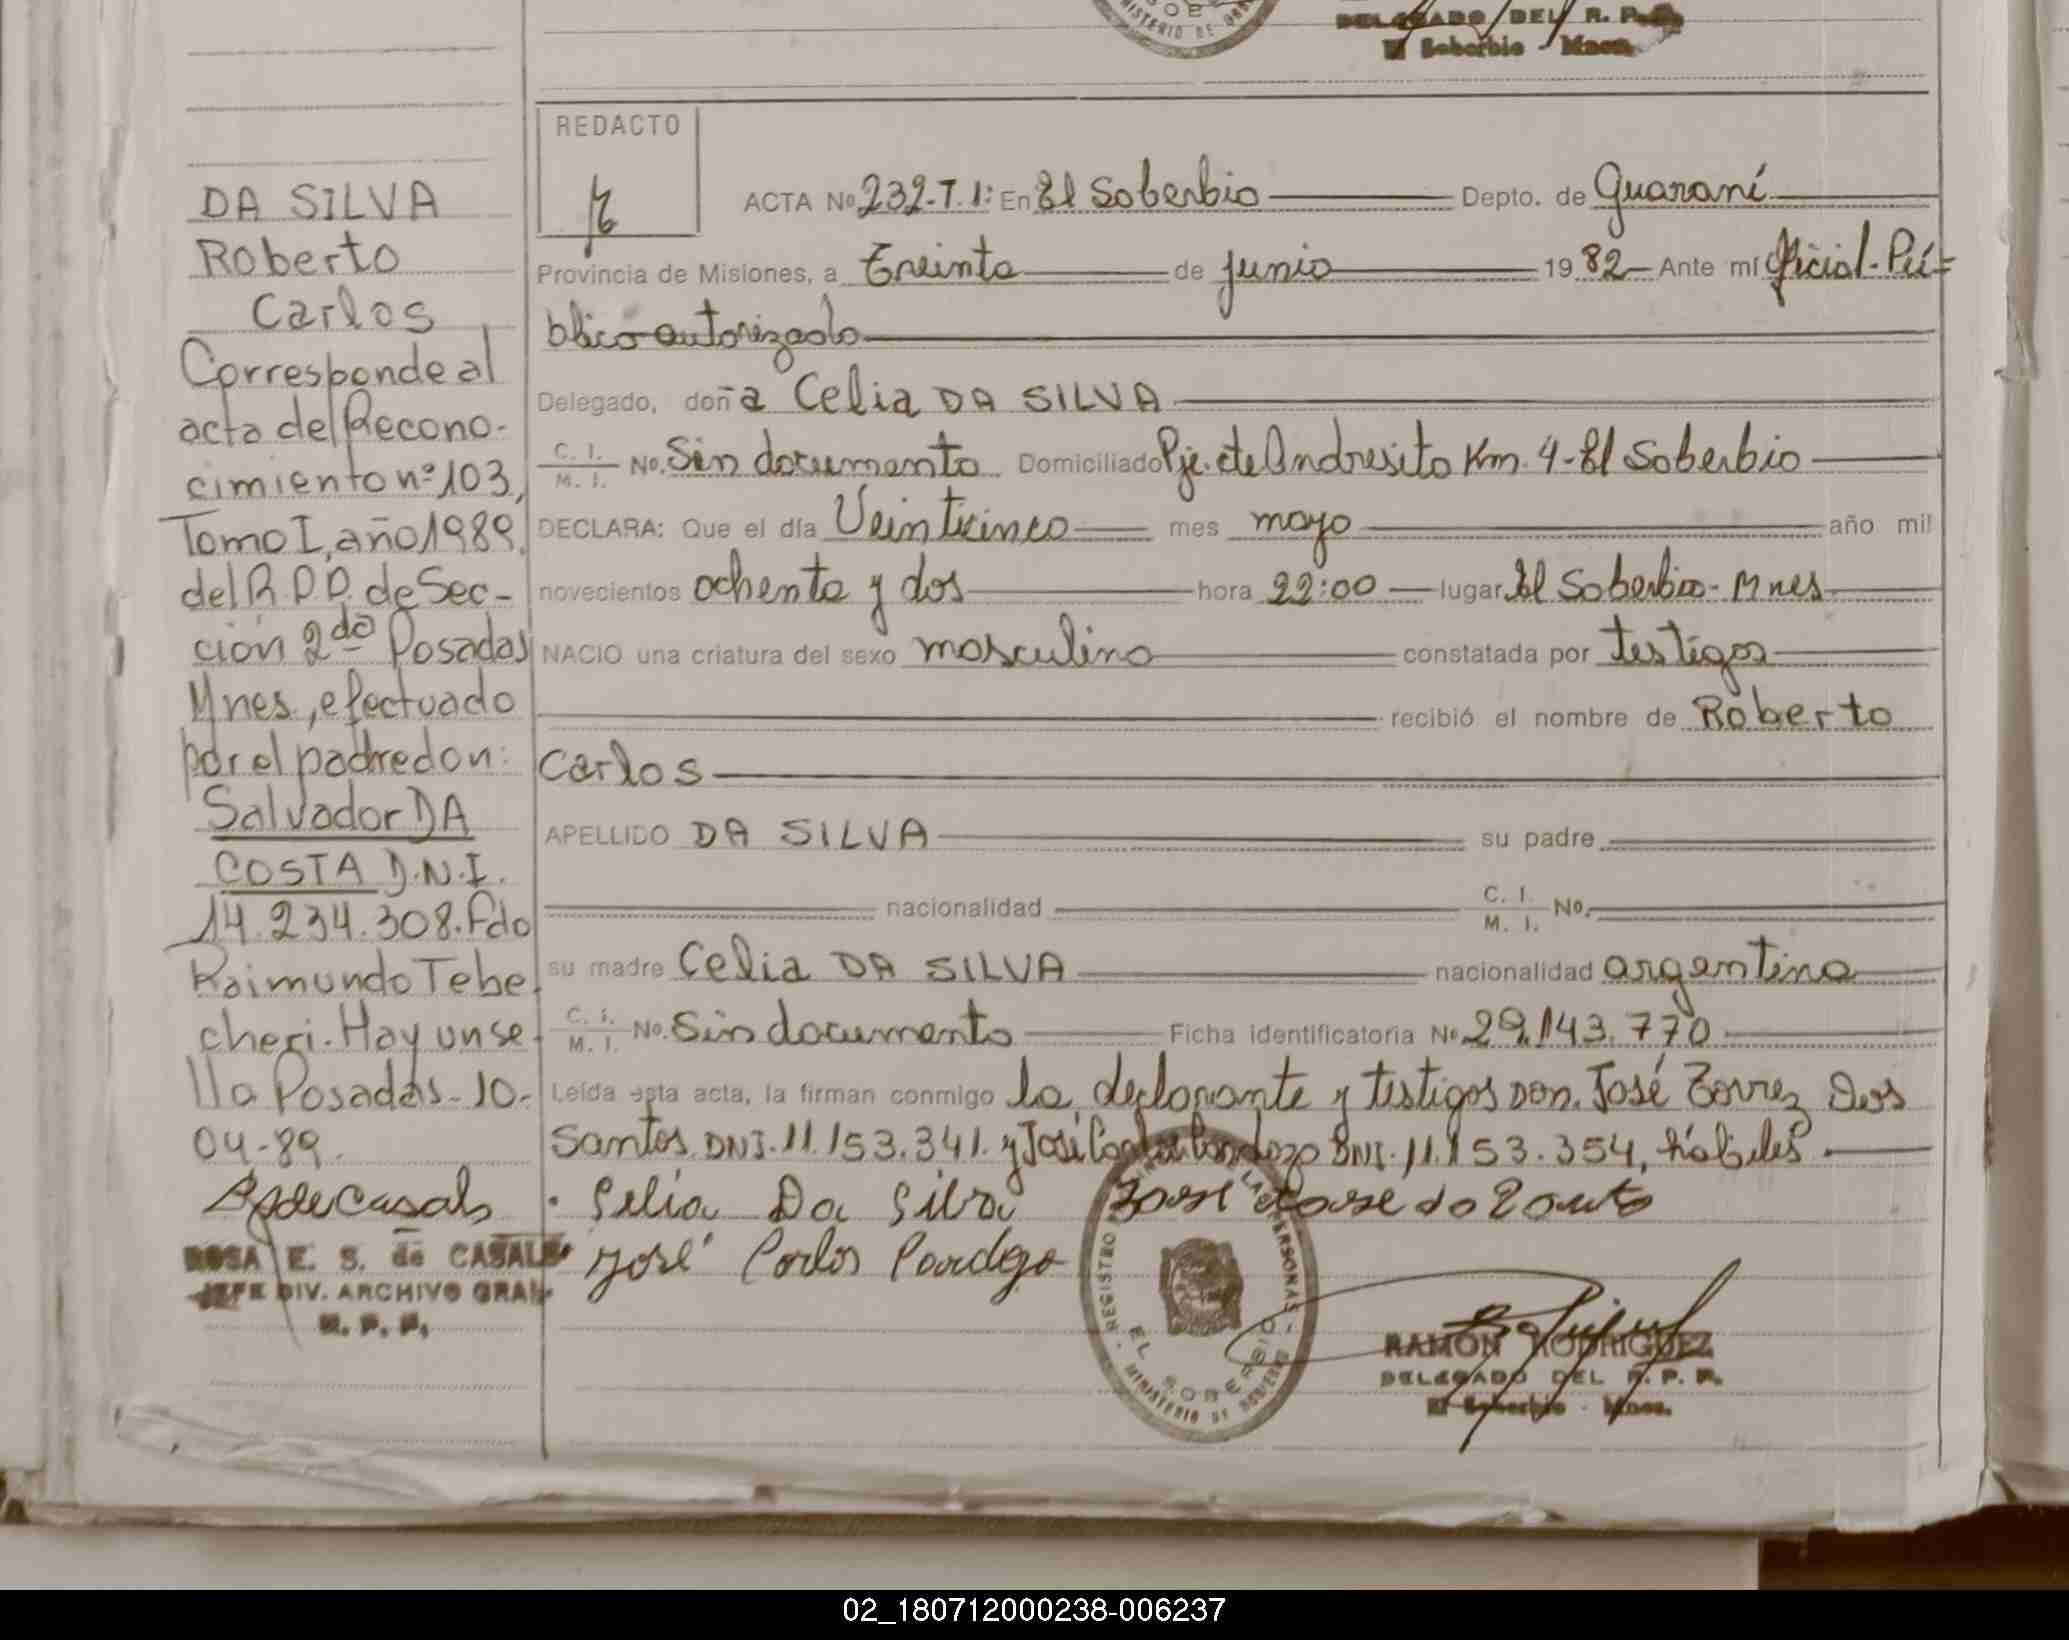 DELEGADO DEL R. P. P.
El Soberbio - Mnes.
REDACTO
DA SILVA
Roberto
Carlos
Corresponde al
acta de Recono-
cimiento nº 103,
Tomo I, año 1989,
del R.P.P. de Sec-
ción 2da Posadas
Mnes, efectuado
por el padre don:
Salvador DA
COSTA D.N.I.
14.234.308. Fdo
Raimundo Tebe
cheri. Hay un se-
llo Posadas - 10-
04-89.
ROSA E. S. de CASALS
JEFE DIV. ARCHIVO GRAL
R. P. P.
ACTA Nº 232-T.I: En El Soberbio Depto. de Guaraní
Provincia de Misiones, a Treinta de junio 1982 Ante mí Oficial Pú=
blico autorizado
Delegado, doña Celia DA SILVA
C. I. / M. I. No. Sin documento Domiciliado Pje. cte Andresito Km. 4 - El Soberbio
DECLARA: Que el día Veinticinco mes mayo año mil
novecientos ochenta y dos hora 22:00 lugar El Soberbio - Mnes
NACIO una criatura del sexo masculino constatada por testigos
recibió el nombre de Roberto
Carlos
APELLIDO DA SILVA su padre
nacionalidad C. I. / M. I. No.
su madre Celia DA SILVA nacionalidad argentina
C. I. / M. I. No. Sin documento Ficha identificatoria Nº 29.143.770
Leída esta acta, la firman conmigo la declarante y testigos Don. José Torrez Dos
Santos DNI. 11.153.341. y José Carlos Cardozo DNI. 11.153.354, hábiles
Selia Da Silva
José Carlos Cardozo
REGISTRO PERSONAS - MINISTERIO DE GOBIERNO
EL SOBERBIO
RAMON RODRIGUEZ
DELEGADO DEL R. P. P.
El Soberbio - Mnes.
02_180712000238-006237